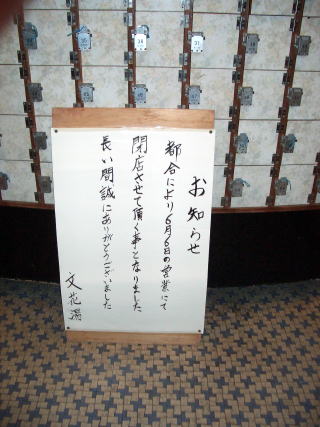 お知らせ
都合により6月6日の営業にて
閉店させて頂く事となりました
長い間、誠にありがとうございました
文花湯